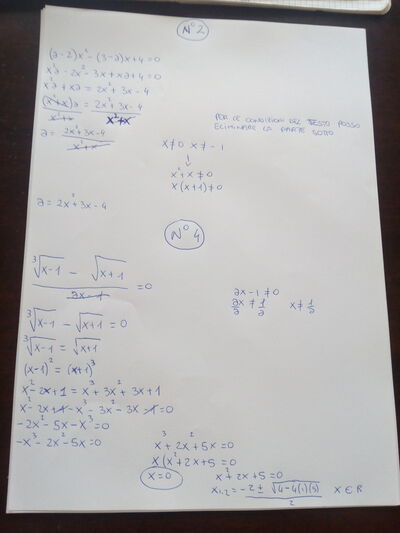 N°2
(a-2)x² - (3-a)x+4=0
x²a - 2x² - 3x + xa + 4 = 0
x²a + xa = 2x² + 3x - 4
(x²+x)a = 2x²+3x-4
x²+x x²+x
a = 2x²+3x-4
x²+x
PER LE CONDIZIONI DEL TESTO POSSO
ELIMINARE LA PARTE SOTTO
x≠0 x≠-1
↓
x²+x≠0
x(x+1)≠0
a = 2x²+3x-4
N°4
∛x-1 - √x+1 = 0
ax-1
ax-1≠0
ax≠1 x≠1
a a a
∛x-1 - √x+1 = 0
∛x-1 = √x+1
(x-1)² = (x+1)³
x²-2x+1 = x³+3x²+3x+1
x²-2x+1-x³-3x²-3x-1=0
-2x²-5x-x³=0
-x³-2x²-5x=0
x³+2x²+5x=0
x(x²+2x+5=0
x=0
x²+2x+5=0
x1,2=-2±√4-4(1)(5) x∈R
2